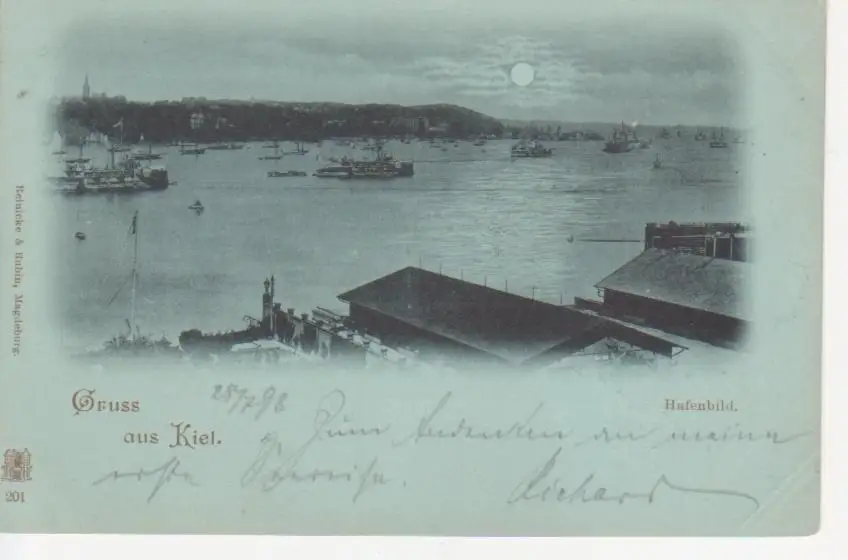 Reinicke & Rubin, Magdeburg.
Gruss
aus Kiel.
28/7 98
Hafenbild.
Zum Andenken an meine
erste
Richard
201